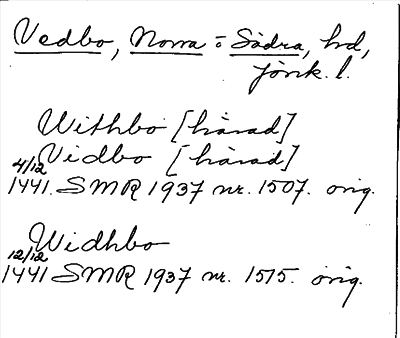 Vedbo, Norra o Södra, hrd,
Jönk. l.
Withbo [härad]
Vidbo [härad]
4/12
1441. SMR 1937 nr. 1507. orig.
Widhbo
12/12
1441 SMR 1937 nr. 1515. orig.